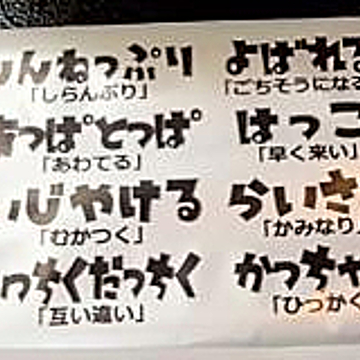 んねっぷり
「しらんぷり」
っぱとっぱ
「あわてる」
心やける
「むかつく」
っちくだっちく
「互い違い」
よばれる
「ごちそうになる
はっこ
「早く来い」
らいさ
「かみなり」
かっちゃ
「ひっかく